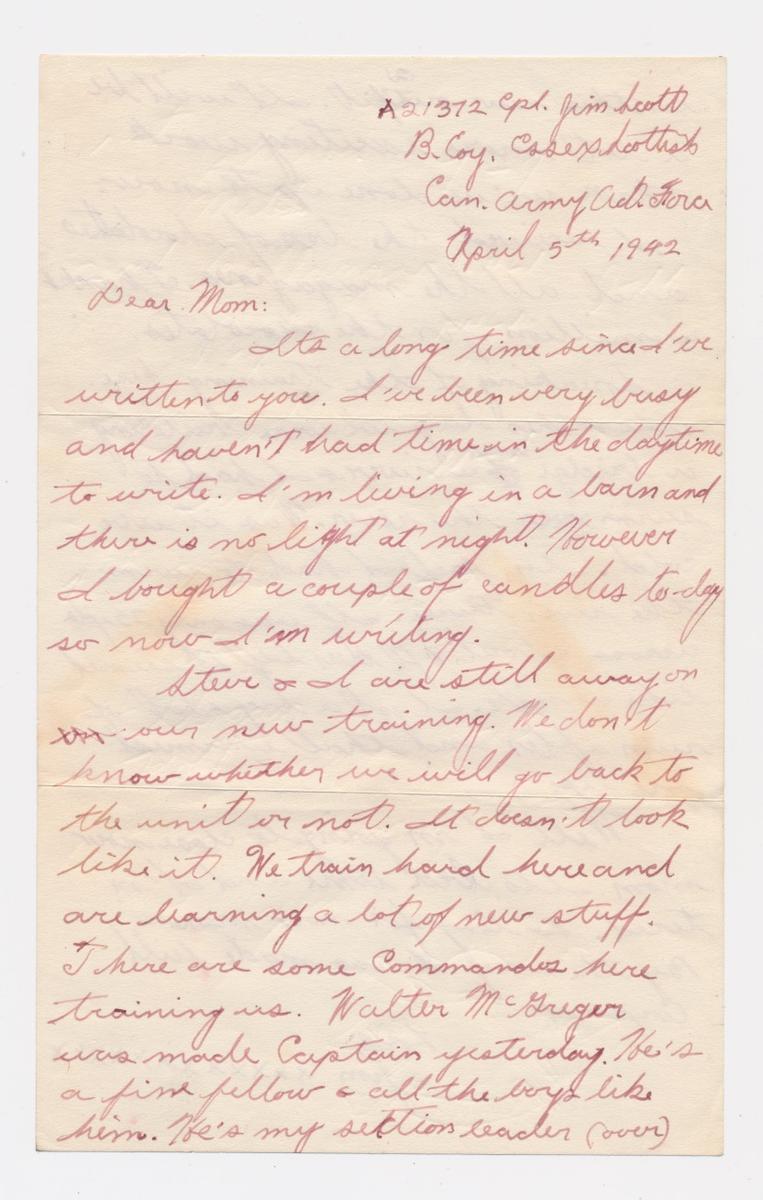 A21372 Cpl. Jim Scott
B. Coy. Essex Scottish
Can. Army
April 5th 1942
Dear Mom:
Its a long time since I've
written to you. I've been very busy
and haven't had time in the daytime
to write. I'm living in a barn and
there is no light at night. However
I bought a couple of candles to-day
so now I'm writing.
Steve & I are still away on
our new training. We don't
know whether we will go back to
the unit or not. It doesn't look
like it. We train hard here and
are learning a lot of new stuff.
There are some Commandos here
training us. Walter McGregor
was made Captain yesterday. He's
a fine fellow & all the boys like
him. He's my section leader (over)